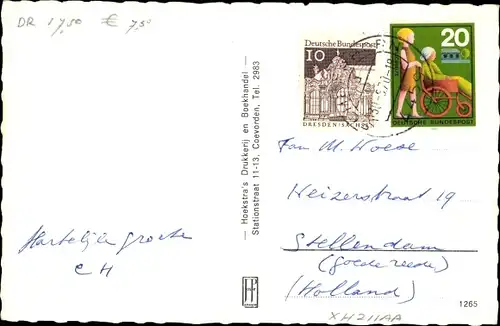 DR 17,50 € 7,50
Deutsche Bundespost
10
DRESDEN/SACHSEN
20
DEUTSCHE BUNDESPOST
— Hoekstra's Drukkerij en Boekhandel —
Stationstraat 11-13, Coevorden, Tel. 2983
Fam M. Woese
Heizerstraat 19
Stellendam
(Goedereede)
(Holland)
Hartelijke groete
CH
1265
XH211AA